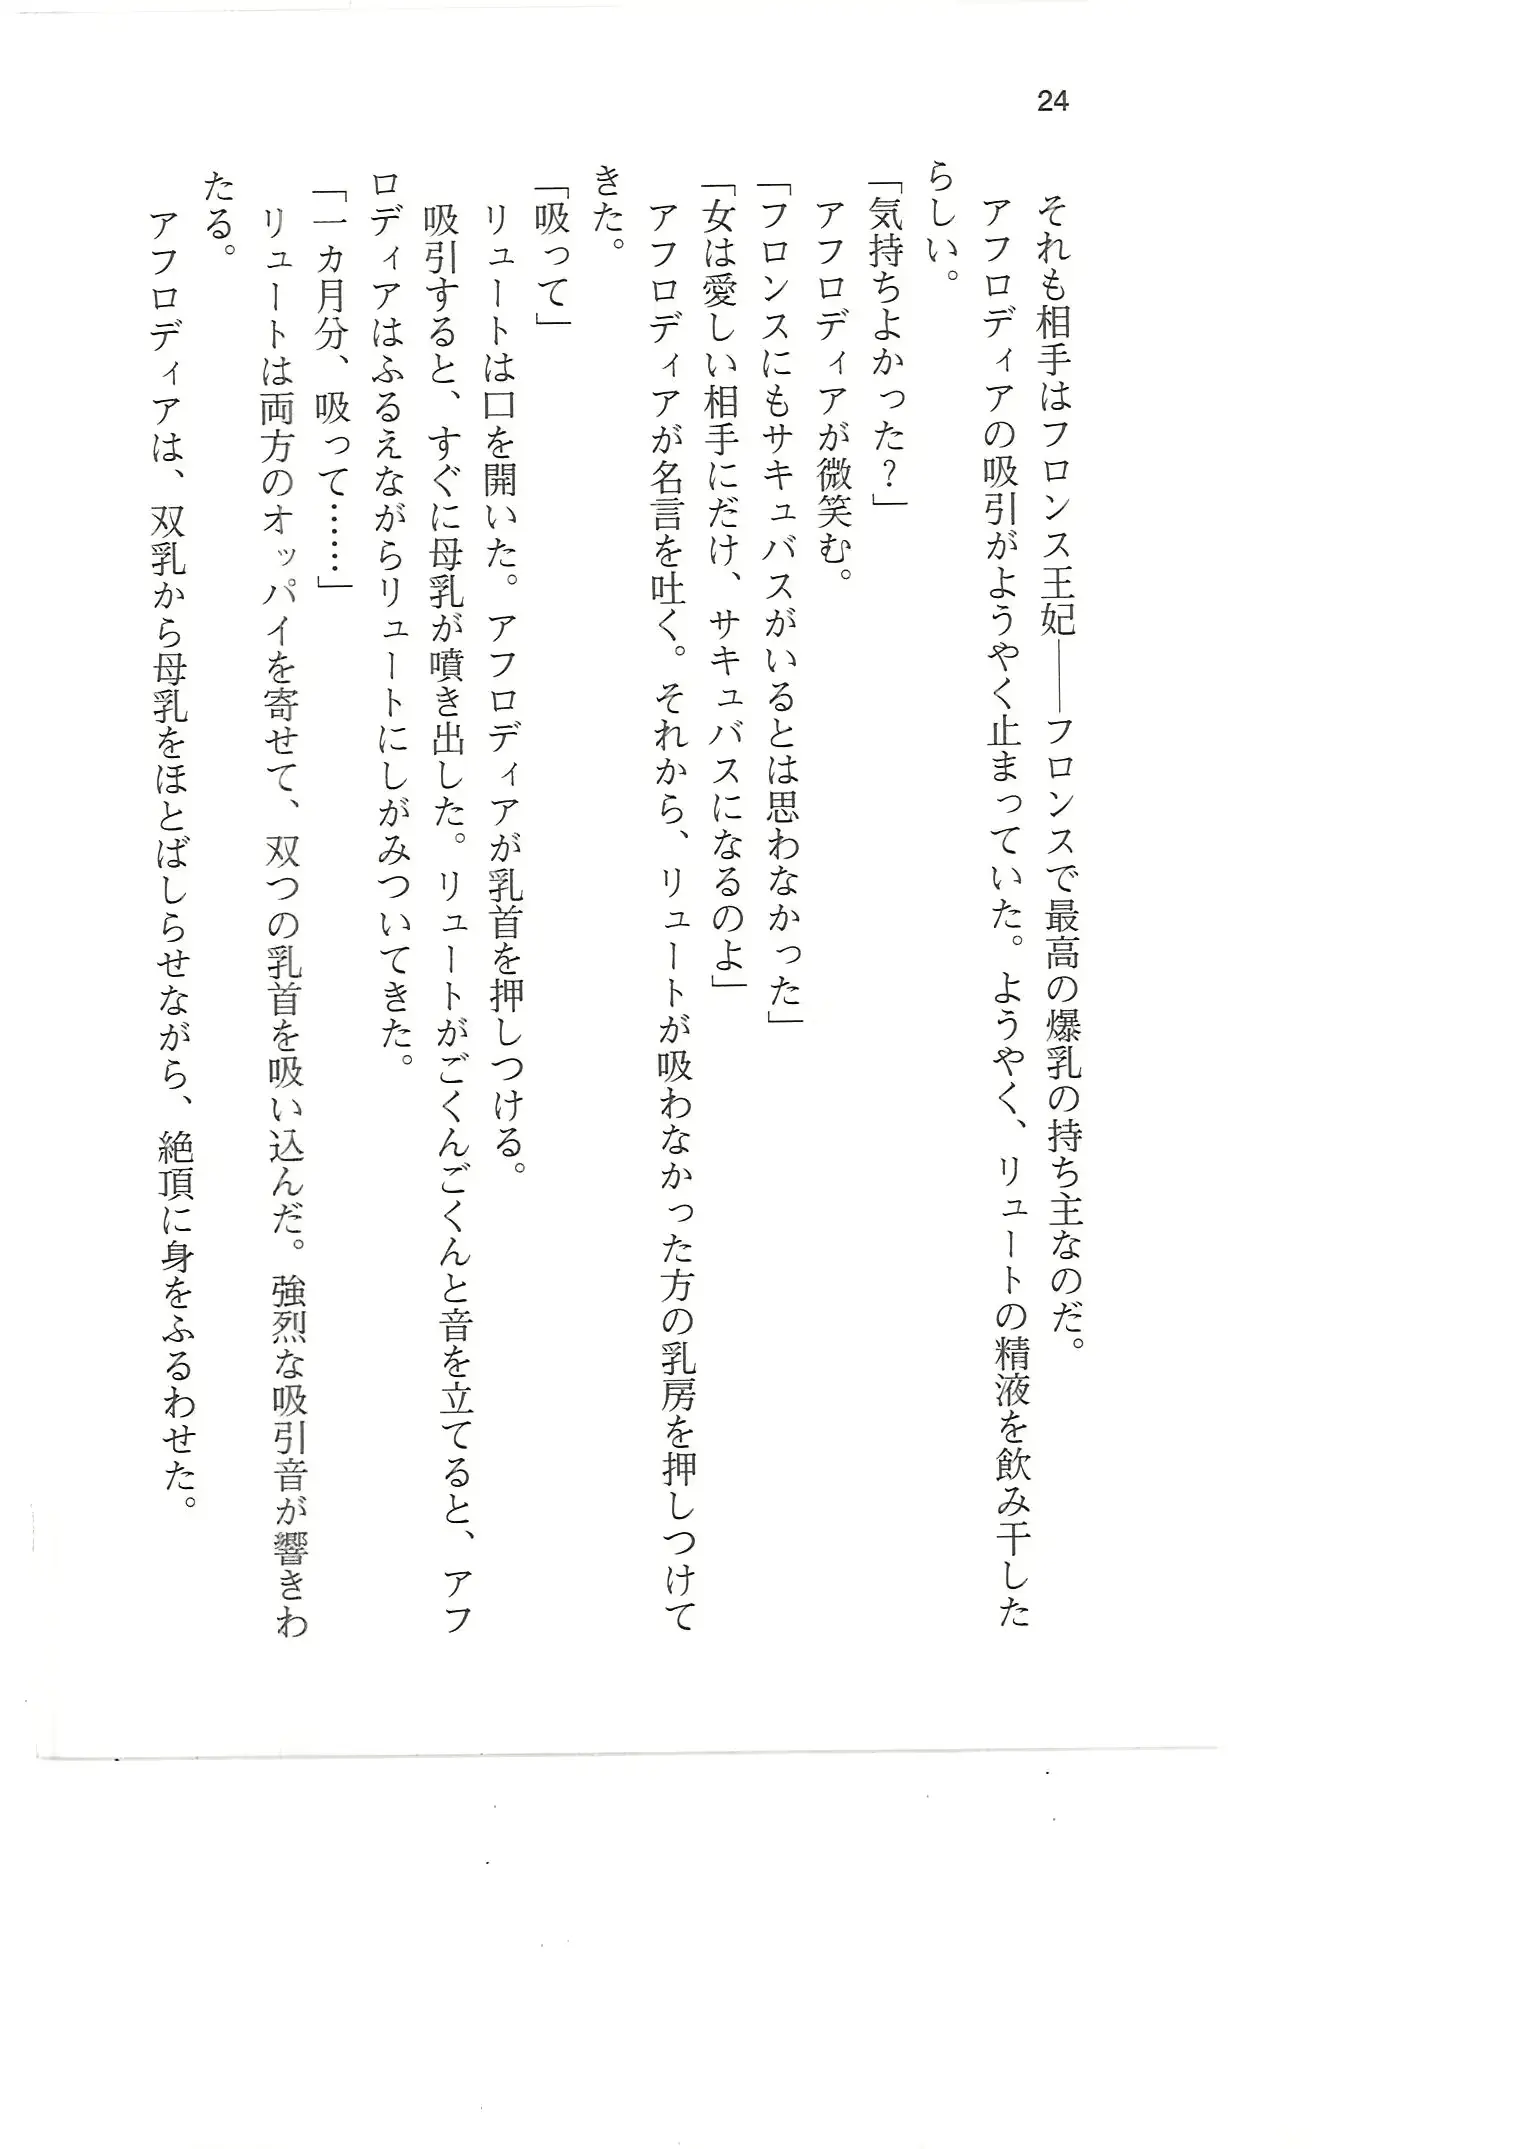 24
それも相手はフロンス王妃――フロンスで最高の爆乳の持ち主なのだ。
アフロディアの吸引がようやく止まっていた。ようやく、リュートの精液を飲み干した
らしい。
「気持ちよかった?」
アフロディアが微笑む。
「フロンスにもサキュバスがいるとは思わなかった」
「女は愛しい相手にだけ、サキュバスになるのよ」
アフロディアが名言を吐く。それから、リュートが吸わなかった方の乳房を押しつけて
きた。
「吸って」
リュートは口を開いた。アフロディアが乳首を押しつける。
吸引すると、すぐに母乳が噴き出した。リュートがごくんごくんと音を立てると、アフ
ロディアはふるえながらリュートにしがみついてきた。
「一カ月分、吸って……」
リュートは両方のオッパイを寄せて、双つの乳首を吸い込んだ。強烈な吸引音が響きわ
たる。
アフロディアは、双乳から母乳をほとばしらせながら、絶頂に身をふるわせた。